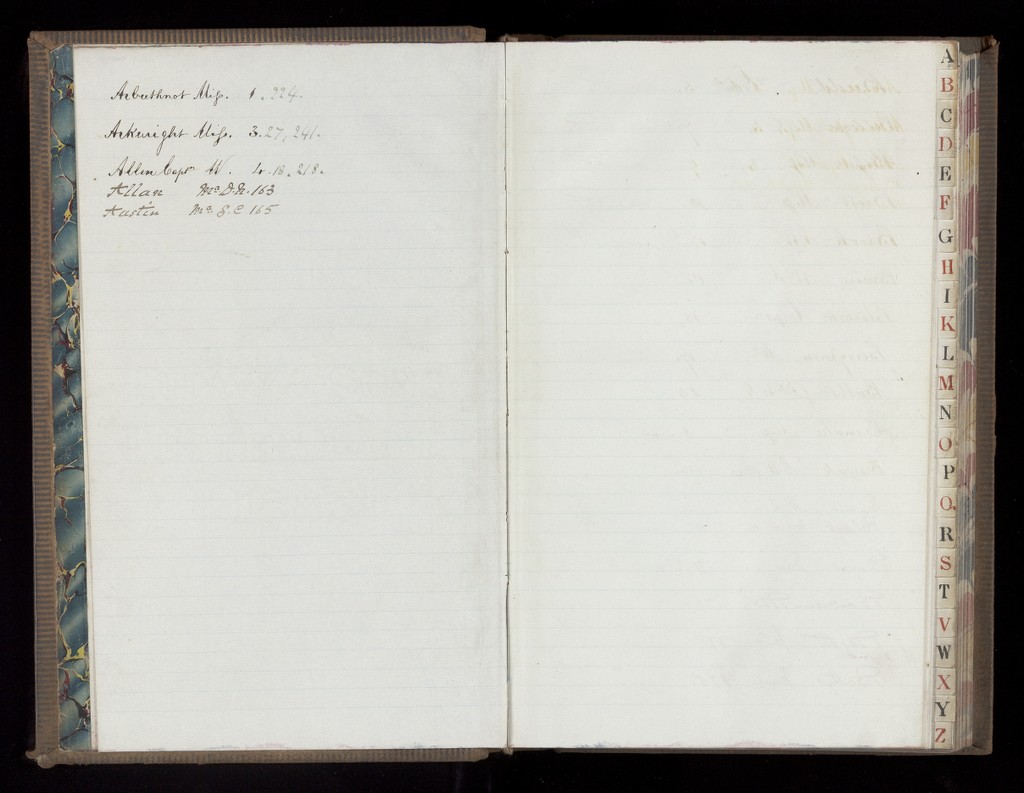 Arbuthnot Miss. 1. 224.
Arkwright Miss. 3. 27, 241.
Allen Captn W. 4. 18. 218.
Allan Mr D. N. 163
Austin Mr G. C 165
A
B
C
D
E
F
G
H
I
K
L
M
N
O
P
Q
R
S
T
V
W
X
Y
Z